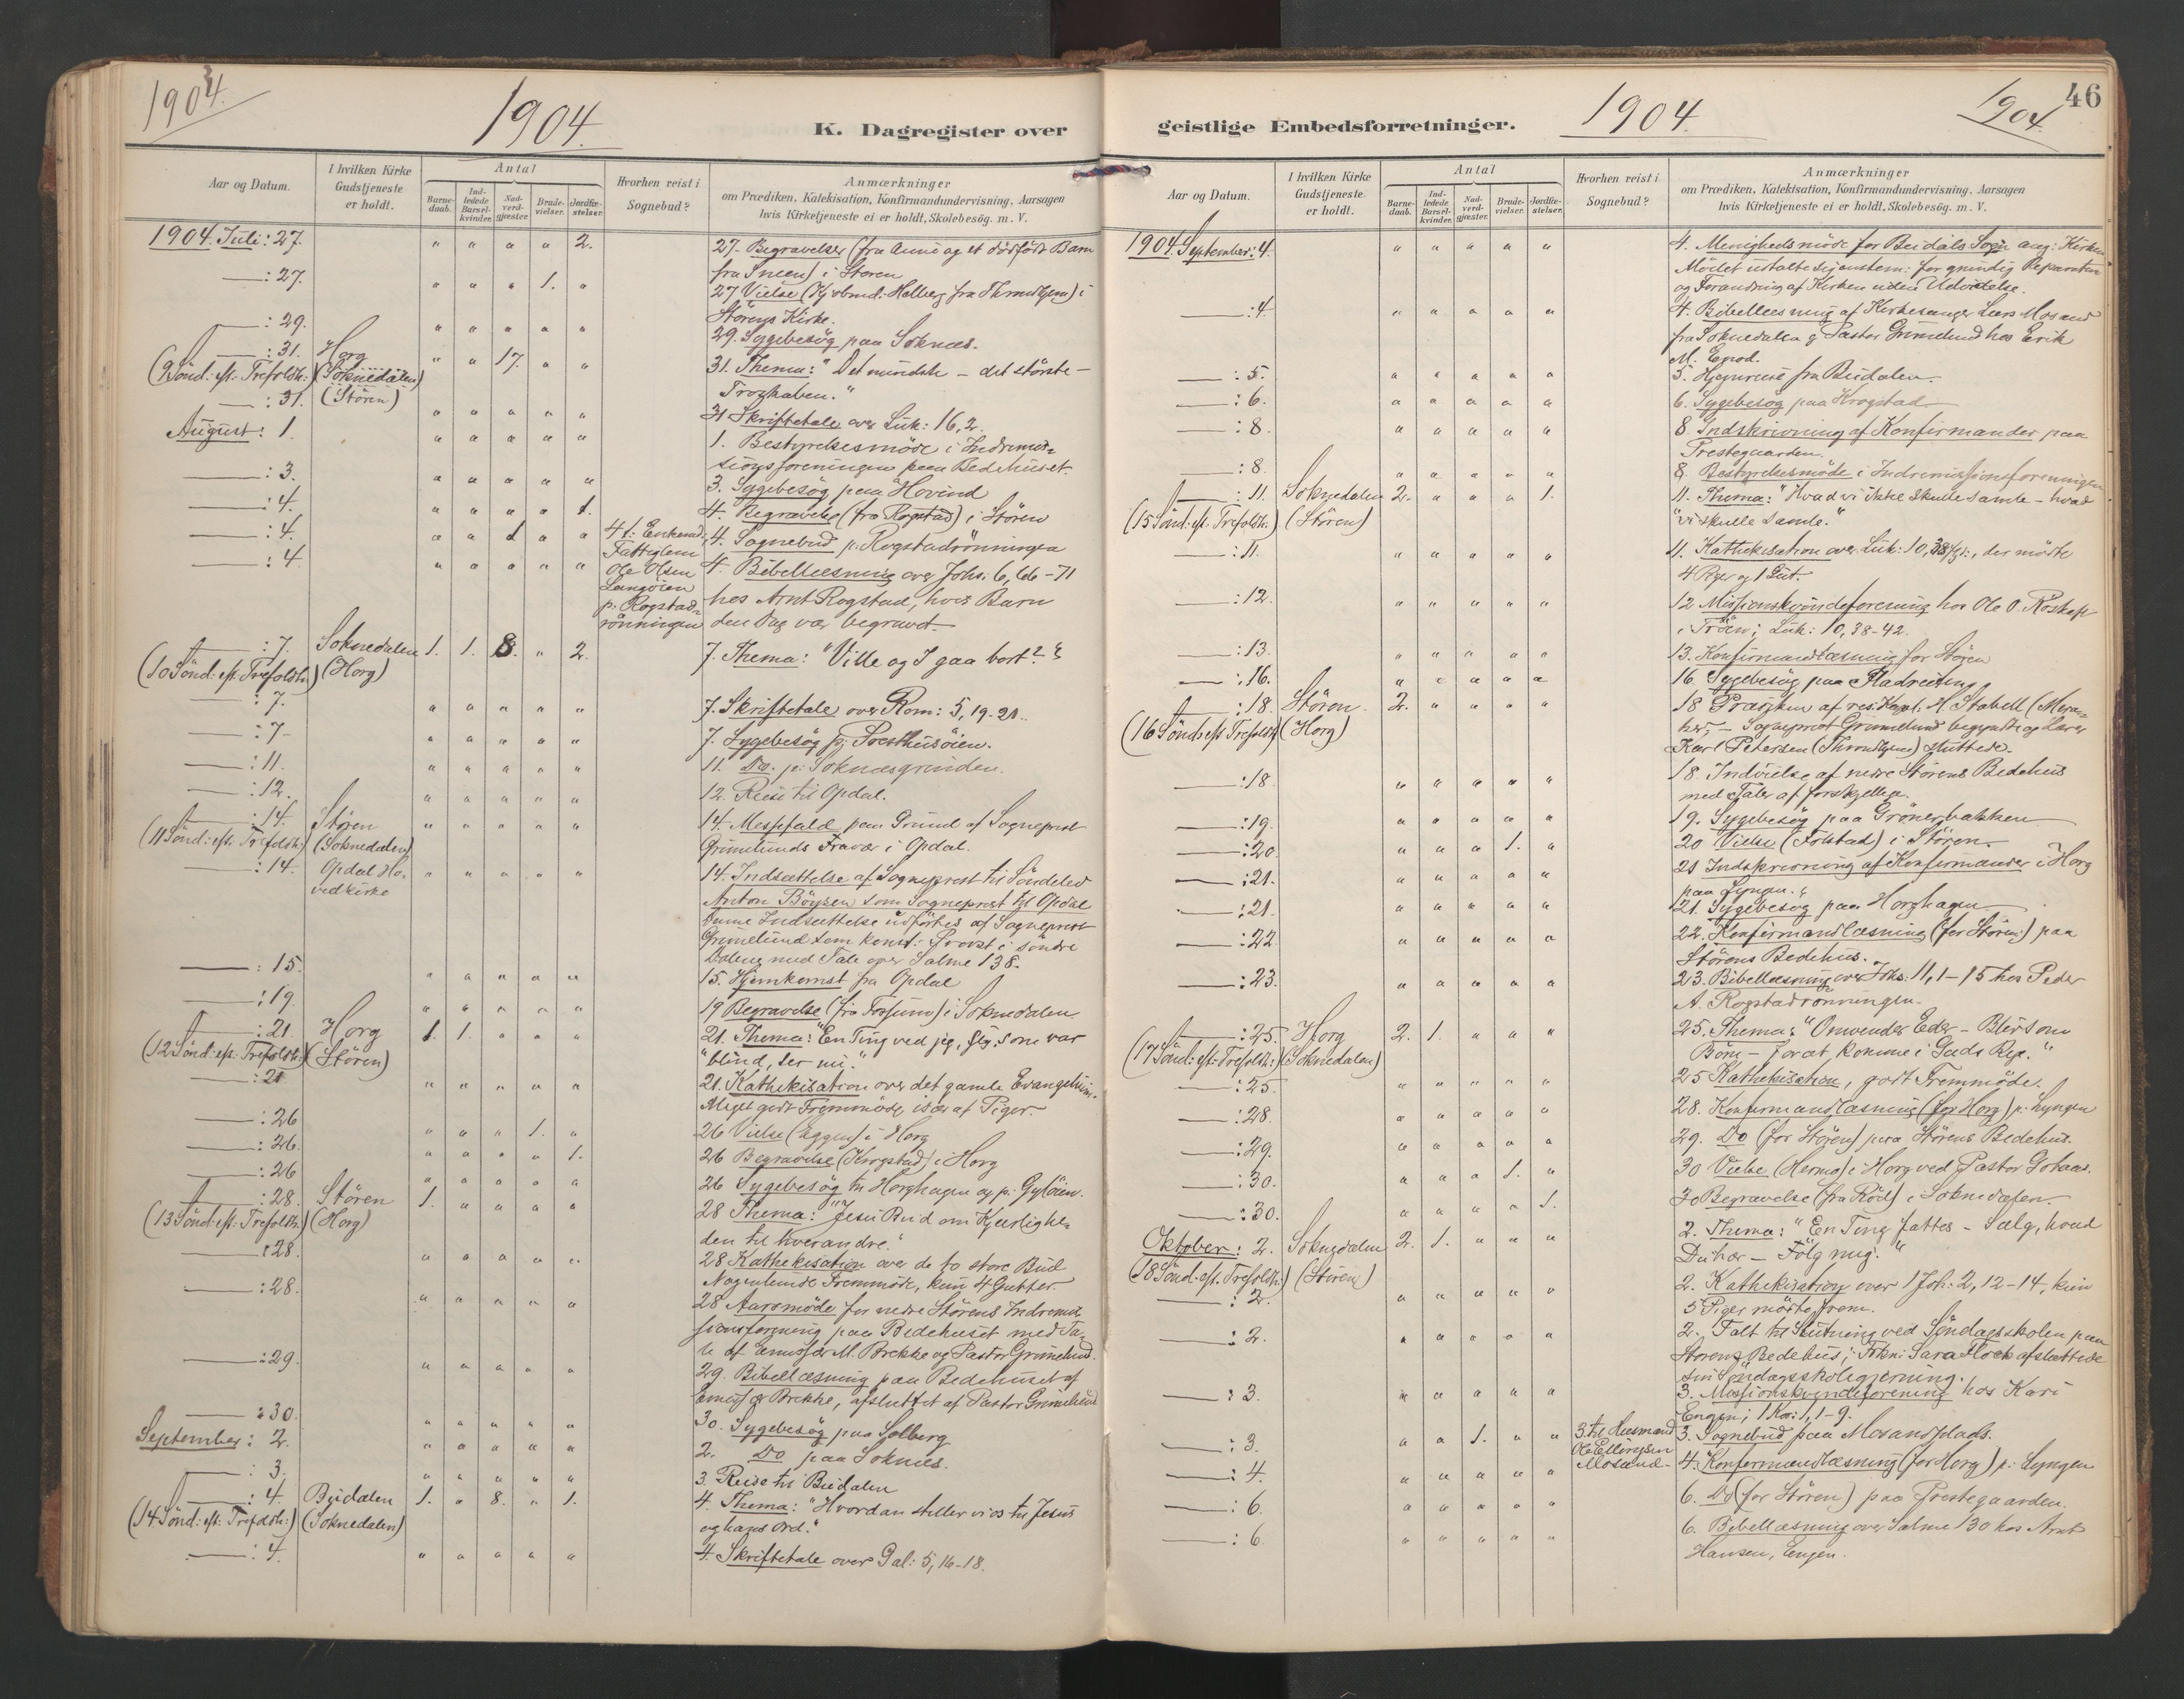 1904.
1904.
K. Dagregister over
Aar og Datum.
I hvilken Kirke
Gudstjeneste
er holdt.
Antal
Barne-
daab.
Ind-
ledede
Barsel-
kvinder.
Nad-
verd-
gjæster.
Brude-
vielser.
Jordfæ-
stelser.
Hvorhen reist i
Sognebud?
Anmærkninger
om Prædiken, Katekisation, Konfirmandundervisning, Aarsagen
hvis Kirketjeneste ei er holdt, Skolebesøg. m. V.
1904. Juli: 27. " " " " 2. 27. Begravelser (fra Aunø og et dødfødt Barn
fra Sneen) i Støren
—: 27. " " " 1. " 27 Vielse (Kjøbmd: Halberg fra Throndhjem) i
Størens Kirke.
—: 29. " " " " " 29. Sygebesøg paa Soknes.
—: 31. Horg " " 17. " " 31. Thema: "Det mindste – det største –
(9 Sönd: eft. Trefoldh:) (Soknedalen) Troskaben."
—: 31. (Støren) " " " " " 31 Skriftetale over Luk: 16, 2.
August: 1. " " " " " 1. Bestyrelsesmøde i Indremis-
sionsforeningen paa Bedehuset.
—: 3. " " " " " 3. Sygebesøg paa Hovind
—: 4. " " " " 1. 4. Begravelse (fra Rogstad) i Støren
—: 4. " " 1 " " 4 t: Enkemd: 4. Sognebud p. Rogstadrønningen
Fattiglem
—: 4. " " " " " Ole Olsen 4. Bibellæsning over Johs: 6, 66–71
Langøien hos Arnt Rogstad, hvis Barn
p. Rogstad-
rønningen den Dag var begravet.
—: 7. Soknedalen 1. 1. 8. " 2. 7. Thema: "Ville og I gaa bort?"
(10 Sönd: eft. Trefoldh:) (Horg)
—: 7. " " " " " 7. Skriftetale over Rom: 5, 19–21.
—: 7. " " " " " 7. Sygebesøg p. Presthusøien.
—: 11. " " " " " 11. Do. p: Soknesgrinden.
—: 12. " " " " " 12. Reise til Opdal.
—: 14. Støren " " " " " 14. Messefald paa Grund af Sogneprest
(11 Sönd: eft. Trefoldh:) (Soknedalen) Grimelunds Fravær i Opdal.
—: 14. Opdal Ho- " " " " " 14. Indsættelse af Sogneprest til Søndeled
vedkirke Anton Böysen som Sogneprest til Opdal
Denne Indsættelse udførtes af Sogneprest
Grimelund som konst: Provst i søndre
Dalene med Tale over Salme 138.
—: 15. " " " " " 15. Hjemkomst fra Opdal
—: 19. " " " " " 19 Begravelse (fra Fossum) i Soknedalen
—: 21 Horg 1. 1. " " " 21. Thema: "En Ting ved jeg, jeg, som var
(12 Sönd: eft. Trefoldh:) (Støren) "blind, ser nu."
—: 21 " " " " " 21. Kathekisation over det gamle Evangelium.
Meget godt Fremmøde, især af Piger.
—: 26 " " " 1. " 26 Vielse (Eggen) i Horg
—: 26. " " " " 1. 26 Begravelse (Krogstad) i Horg
—: 26 " " " " " 26 Sygebesøg til Horghagen og p: Gyløien.
—: 28. Støren 1. " " " " 28 Thema: "Jesu Bud om Kjærlighe-
(13 Sönd: eft. Trefoldh.) (Horg) den til hverandre."
—: 28. " " " " " 28 Kathekisation over de to store Bud
Nogenlunde Fremmøde, kun 4 Gutter.
—: 28. " " " " " 28 Aarsmøde for nedre Størens Indremis-
sionsforening paa Bedehuset med Ta-
le af Emissær M. Brekke og Pastor Grimelund.
—: 29. " " " " " 29. Bibellæsning paa Bedehuset af
Emissær Brekke, afsluttet af Pastor Grimelund
—: 30. " " " " " 30. Sygebesøg paa Solberg
September: 2. " " " " " 2. Do paa Soknes.
—: 3. " " " " " 3. Reise til Budalen
—: 4. Budalen 1. " 8. " 1. 4. Thema: "Hvordan stiller vi os til Jesus
(14 Sönd: eft. Trefoldh:) (Soknedalen) og hans Ord."
—: 4. " " " " " 4. Skriftetale over Gal: 5, 16–18.
46
1904.
1904.
geistlige Embedsforretninger.
Aar og Datum.
I hvilken Kirke
Gudstjeneste
er holdt.
Antal
Barne-
daab.
Ind-
ledede
Barsel-
kvinder.
Nad-
verd-
gjæster.
Brude-
vielser.
Jordfæ-
stelser.
Hvorhen reist i
Sognebud?
Anmærkninger
om Prædiken, Katekisation, Konfirmandundervisning, Aarsagen
hvis Kirketjeneste ei er holdt, Skolebesøg. m. V.
1904. September: 4. " " " " " 4. Menighedsmøde for Budals Sogn ang: Kirken
Mødet udtalte sig enstem: for grundig Reparation
og Forandring af Kirken uden Udvidelse.
—: 4. " " " " " 4. Bibellæsning af Kirkesanger Lars Mosand
fra Soknedalen og Pastor Grimelund hos Erik
M. Enod.
—: 5. " " " " " 5. Hjemreise fra Budalen.
—: 6. " " " " " 6. Sygebesøg paa Krogstad
—: 8. " " " " " 8. Indskrivning af Konfirmander paa
Prestegaarden.
—: 8. " " " " " 8. Bestyrelsesmøde i Indremissionsforeningen
—: 11. Soknedalen 2. " " " 1. 11. Thema: "Hvad vi ikke skulle samle – hvad
(15 Sönd: eft. Trefoldh.) (Støren) "vi skulle samle."
—: 11. " " " " " 11. Kathekisation over Luk: 10, 38 flg:, der mødte
4 Piger og 1 Gut.
—: 12. " " " " " 12 Missionskvindeforening hos Ole O. Roskaft
i Trøen; Luk: 10, 38–42.
—: 13. " " " " " 13. Konfirmandlæsning for Støren
—: 16. " " " " " 16 Sygebesøg paa
—: 18. Støren 2. " " " " 18 Prædiken af res: Kapl: H Stabell (Mera-
(16 Sönd: eft Trefoldh) (Horg) ker, – Sogneprest Grimelund begyndte og Lærer
Karl Petersen (Throndhjem) sluttede.
—: 18. " " " " " 18. Indvielse af nedre Størens Bedehus
med Taler af forskjellige.
—: 19. " " " " " 19. Sygebesøg paa Grønerbakken
—: 20. " " " 1. " 20 Vielse (Folstad) i Støren.
—: 21. " " " " " 21 Indskrivning af Konfirmander i Horg
paa Lyngen.
—: 21. " " " " " 21. Sygebesøg paa Horghagen
—: 22. " " " " " 22. Konfirmandlæsning (for Støren:) paa
Størens Bedehus.
—: 23. " " " " " 23. Bibellæsning over Johs: 11, 1–15 hos Peder
A. Rogstadrønningen.
—: 25. Horg 2. 1. " " " 25. Thema: "Omvender Eder – Bliv som
(17 Sönd: eft: Trefoldh:) (Soknedalen) Børn – for at komme i Guds Rige."
—: 25. " " " " " 25 Kathekisation, godt Fremmøde.
—: 28. " " " " " 28. Konfirmandlæsning (for Horg) p: Lyngen
—: 29. " " " " " 29. Do (for Støren) paa Størens Bedehus.
—: 30. " " " 1. " 30 Vielse (Hermo) i Horg ved Pastor Gotaas.
—: 30. " " " " 1. 30 Begravelse (fra Rød) i Soknedalen.
Oktober: 2. Soknedalen 2. 1. " " " 2. Thema: "En Ting fattes – Sælg, hvad
(18 Sönd. eft. Trefoldh:) (Støren) Du har – Følg mig."
—: 2. " " " " " 2. Kathekisation over 1 Joh: 2, 12–14, kun
5 Piger mødte frem.
—: 2. " " " " " 2. Talt til Slutning ved Søndagsskolen paa
Størens Bedehus; Frkn: Sara Flock afsluttede
sin Søndagsskolegjerning.
—: 3. " " " " " 3. Missionskvindeforening hos Kari
Engen; 1 Kor: 1, 1–9.
—: 3. " " 1. " " 3. til Husmand 3. Sognebud paa Mosandplads.
Ole Ellingsen
Mosand–
—: 4. " " " " " 4. Konfirmandlæsning (for Horg) p: Lyngen
—: 6. " " " " " 6. Do (for Støren) paa Prestegaarden.
—: 6. " " " " " 6. Bibellæsning over Salme 130 hos Arnt
Hansen, Engen.